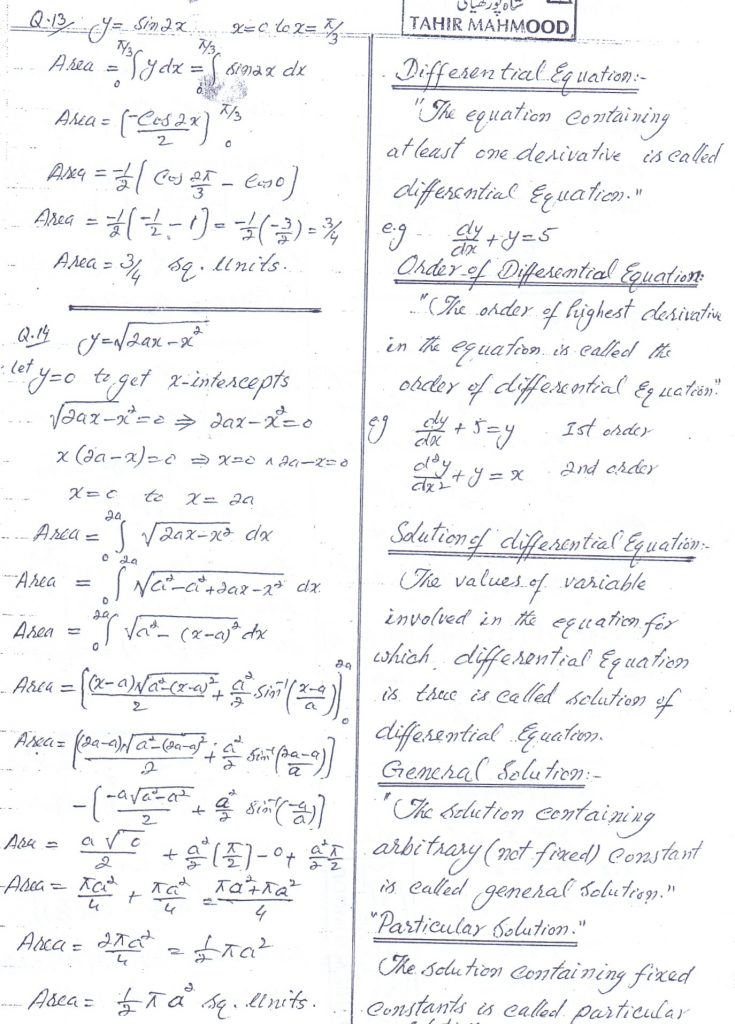 Q.13 y = Sin2x x=0 to x=π/3
Area = ₀∫^π/3 y dx = ₀∫^π/3 sin2x dx
Area = (-Cos2x / 2)₀^π/3
Area = -1/2 [Cos 2π/3 - Cos0]
Area = -1/2 [-1/2 - 1] = -1/2 (-3/2) = 3/4
Area = 3/4 sq. Units.
Q.14 y=√(2ax-x²)
let y=0 to get x-intercepts
√(2ax-x²)=0 ⇒ 2ax-x²=0
x(2a-x)=0 ⇒ x=0 ∧ 2a-x=0
x=0 to x=2a
Area = ₀∫^2a √(2ax-x²) dx
Area = ₀∫^2a √(a²-a²+2ax-x²) dx
Area = ₀∫^2a √(a²-(x-a)²) dx
Area = [(x-a)√(a²-(x-a)²) / 2 + a²/2 Sin⁻¹((x-a)/a)]₀^2a
Area = [(2a-a)√(a²-(2a-a)²) / 2 + a²/2 Sin⁻¹((2a-a)/a)]
- [-a√(a²-a²) / 2 + a²/2 Sin⁻¹(-a/a)]
Area = a√0 / 2 + a²/2 (π/2) - 0 + a²/2 π/2
Area = πa²/4 + πa²/4 = (πa²+πa²)/4
Area = 2πa²/4 = 1/2 πa²
Area = 1/2 π a² sq. Units.
TAHIR MAHMOOD
Differential Equation:-
"The equation containing
atleast one derivative is called
differential Equation."
e.g dy/dx + y = 5
Order of Differential Equation:
"The order of highest derivative
in the equation is called the
order of differential Equation."
eg dy/dx + 5 = y Ist order
d²y/dx² + y = x 2nd order
Solution of differential Equation:-
The values of variable
involved in the equation for
which differential Equation
is true is called solution of
differential Equation.
General Solution:-
"The solution containing
arbitrary (not fixed) constant
is called general solution."
"Particular Solution."
The solution containing fixed
constants is called particular